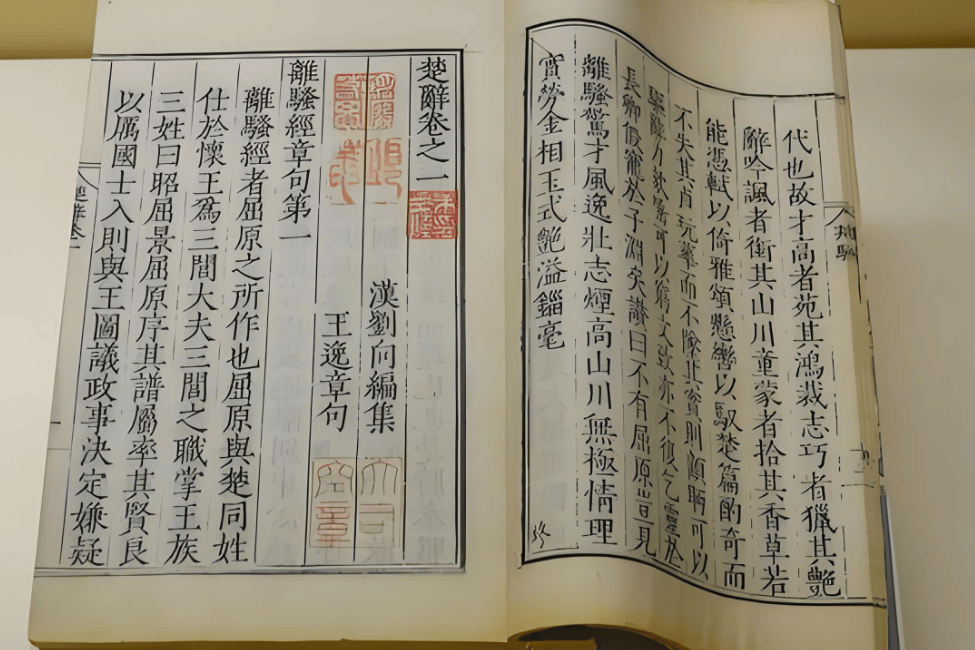 代也故才高者苑其鴻裁志巧者獵其艷
辭吟諷者銜其山川童蒙者拾其香草若
能憑軾以倚雅頌懸轡以馭楚篇酌奇而
不失其貞玩華而不墜其實則顧盼可以
驅辭力欬唾可以窮文致亦不復乞靈於
長卿假寵於子淵矣讃曰不有屈原豈見
離騷驚才風逸壯志煙高山川無極情理
實勞金相玉式艷溢錙毫
楚辭卷之一
漢劉向編集
王逸章句
離騷經章句第一
離騷經者屈原之所作也屈原與楚同姓
仕於懷王爲三閭大夫三閭之職掌王族
三姓曰昭屈景屈原序其譜屬率其賢良
以厲國士入則與王圖議政事決定嫌疑